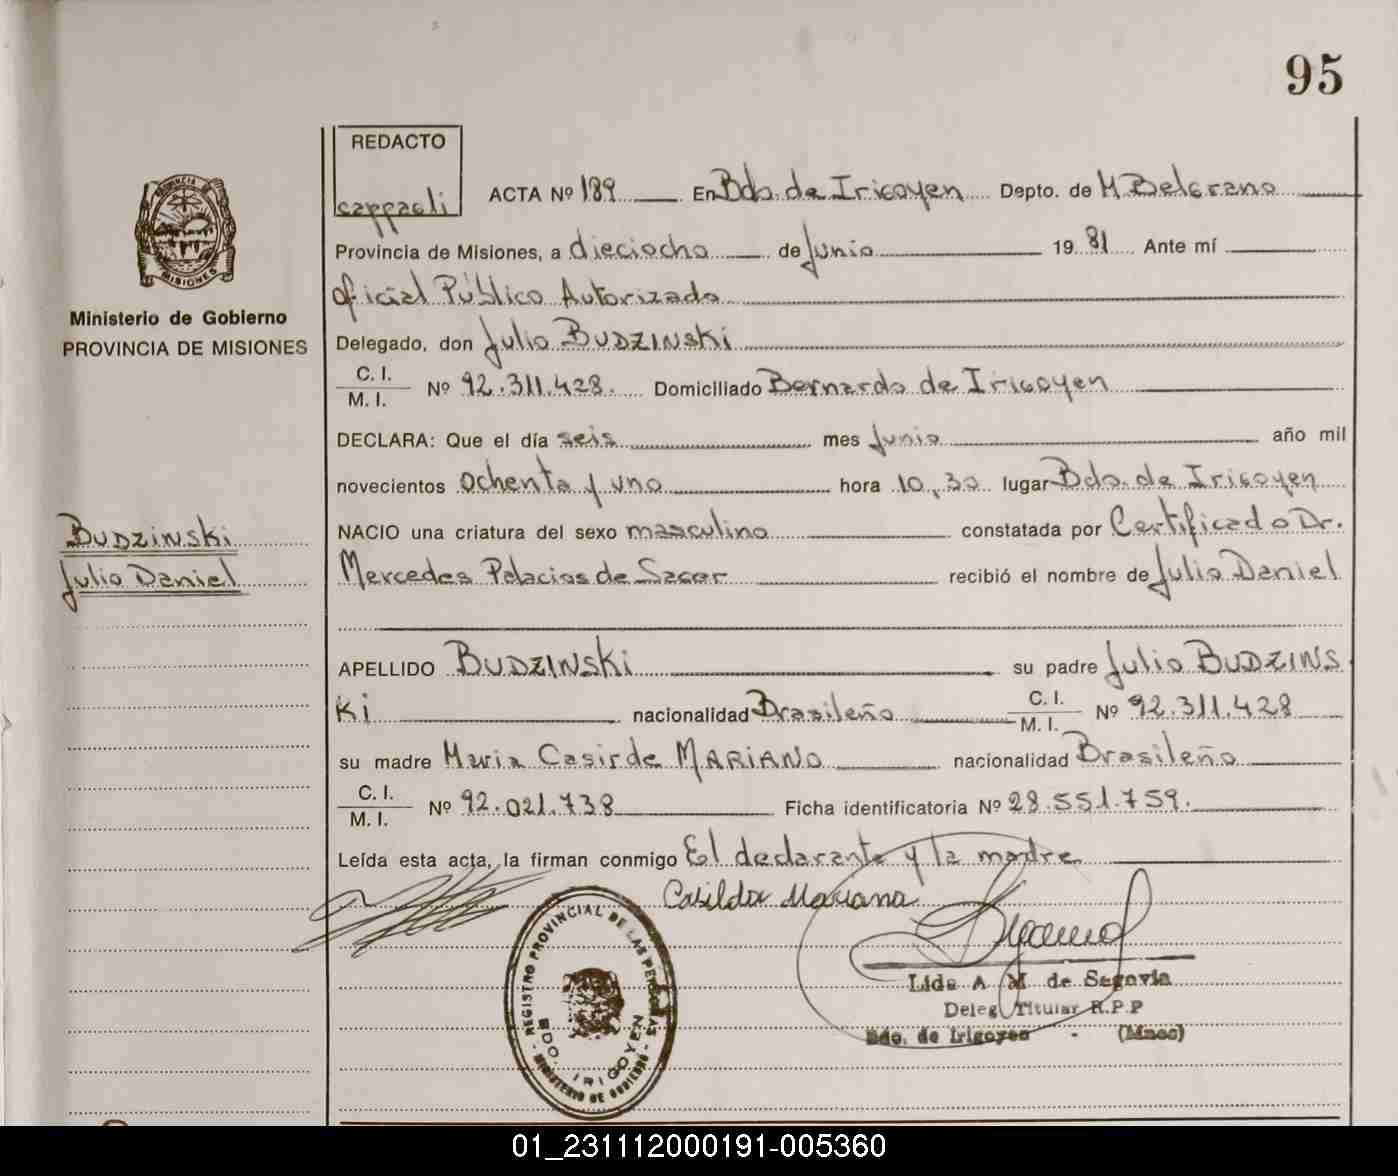 95
REDACTO
cappaeli
ACTA Nº 189 En Bdo. de Irigoyen Depto. de M. Belgrano
Provincia de Misiones, a dieciocho de Junio 1981 Ante mí
Oficial Público Autorizado
Delegado, don Julio BUDZINSKi
C. I.
M. I.
Nº 92.311.428. Domiciliado Bernardo de Irigoyen
DECLARA: Que el día seis mes Junio año mil
novecientos ochenta y uno hora 10,30 lugar Bdo. de Irigoyen
NACIO una criatura del sexo masculino constatada por Certificado Dr.
Mercedes Palacios de Sacer recibió el nombre de Julio Daniel
APELLIDO BUDZINSKi su padre Julio BUDZINS
Ki nacionalidad Brasileño C. I.
M. I. Nº 92.311.428
su madre Maria Casirde MARIANO nacionalidad Brasileño
C. I.
M. I.
Nº 92.021.738 Ficha identificatoria Nº 28.551.759.
Leída esta acta, la firman conmigo El declarante y la madre
Casilda Mariana
Lida A M de Segovia
Deleg Titular R.P.P
Bdo. de Irigoyen - (Mnes)
REGISTRO PROVINCIAL DE LAS PERSONAS
BDO. IRIGOYEN
MINISTERIO DE GOBIERNO
PROVINCIA DE
MISIONES
Ministerio de Gobierno
PROVINCIA DE MISIONES
BUDZINSKi
Julio Daniel
01_231112000191-005360